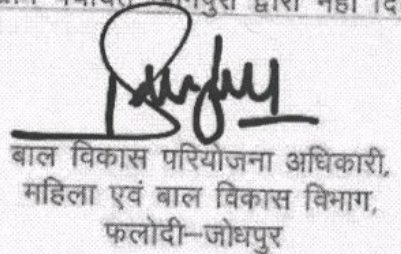 द्वारा नहीं
बाल विकास परियोजना अधिकारी,
महिला एवं बाल विकास विभाग,
फलोदी–जोधपुर